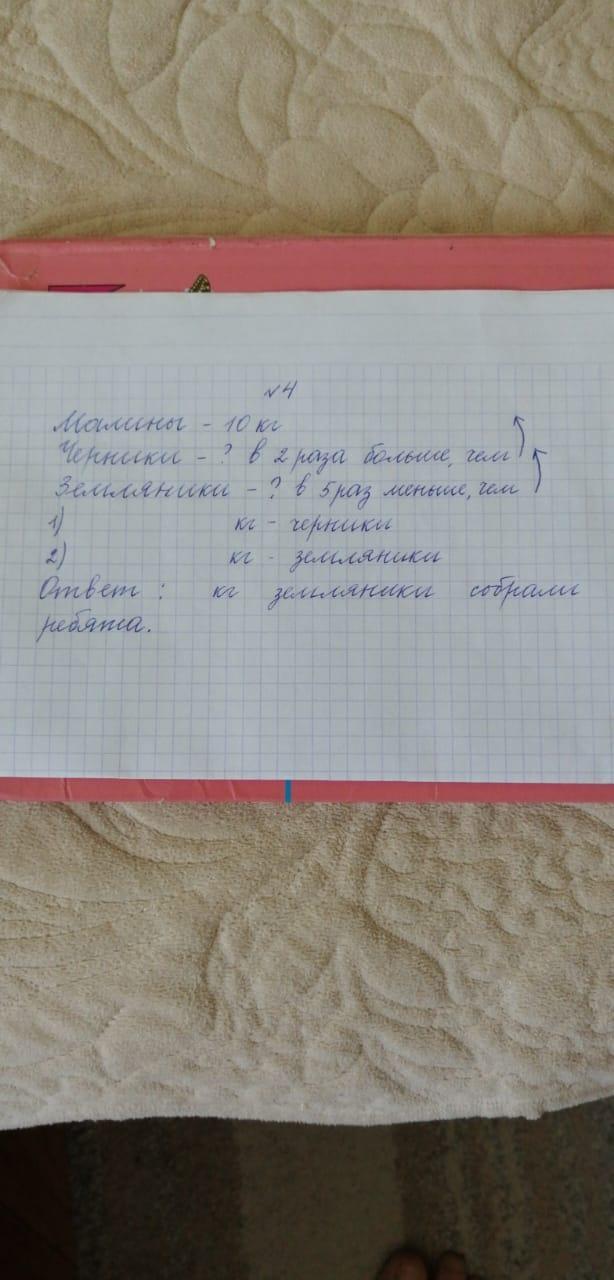 №4
Малины - 10 кг
Черники - ? в 2 раза больше, чем
Земляники - ? в 5 раз меньше, чем
1) кг - черники
2) кг - земляники
Ответ : кг земляники собрали
ребята.